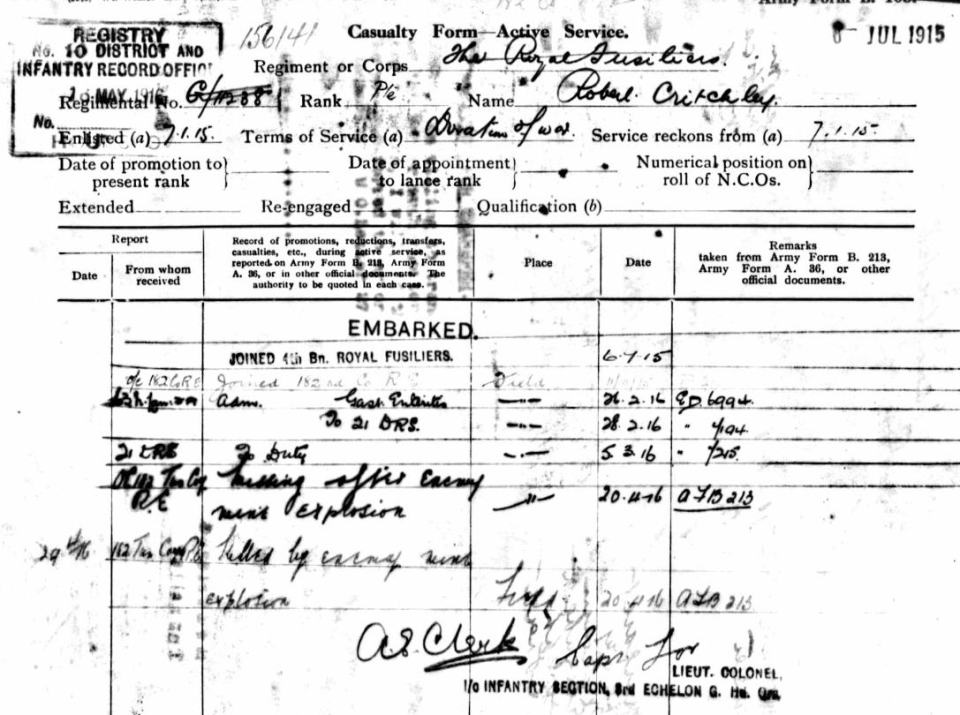 Casualty Form—Active Service.
8 JUL 1915
REGISTRY
No. 10 DISTRICT AND
INFANTRY RECORD OFFICE
MAY 1916
No.
156141
Regiment or Corps The Royal Fusiliers.
Regimental No. G/11238 Rank Pte Name Robert Critchley
Enlisted (a) 7.1.15. Terms of Service (a) Duration of war. Service reckons from (a) 7.1.15.
Date of promotion to present rank
Date of appointment to lance rank
Numerical position on roll of N.C.Os.
Extended Re-engaged Qualification (b)
Report
Date
From whom received
Record of promotions, reductions, transfers, casualties, etc., during active service, as reported on Army Form B. 213, Army Form A. 36, or in other official documents. The authority to be quoted in each case.
Place
Date
Remarks taken from Army Form B. 213, Army Form A. 36, or other official documents.
EMBARKED.
JOINED 4th Bn. ROYAL FUSILIERS. 6-7-15
o/c 182 Co R E Joined 182nd Co R E Field
Adm. Gast. Enteritis 26.2.16 ED 6994.
To 21 DRS. 28.2.16 "
21 DRS To Duty 5 3 16 "
OC 182 Tun Coy R.E Missing after enemy mine explosion 20-4-16 AFB 213
29/4/16 182 Tun Coy R.E Killed by enemy mine explosion Field 20-4-16 AFB 213
A.E. Clerk Capt for
LIEUT. COLONEL,
I/c INFANTRY SECTION, 3rd ECHELON G. Hd. Qrs.